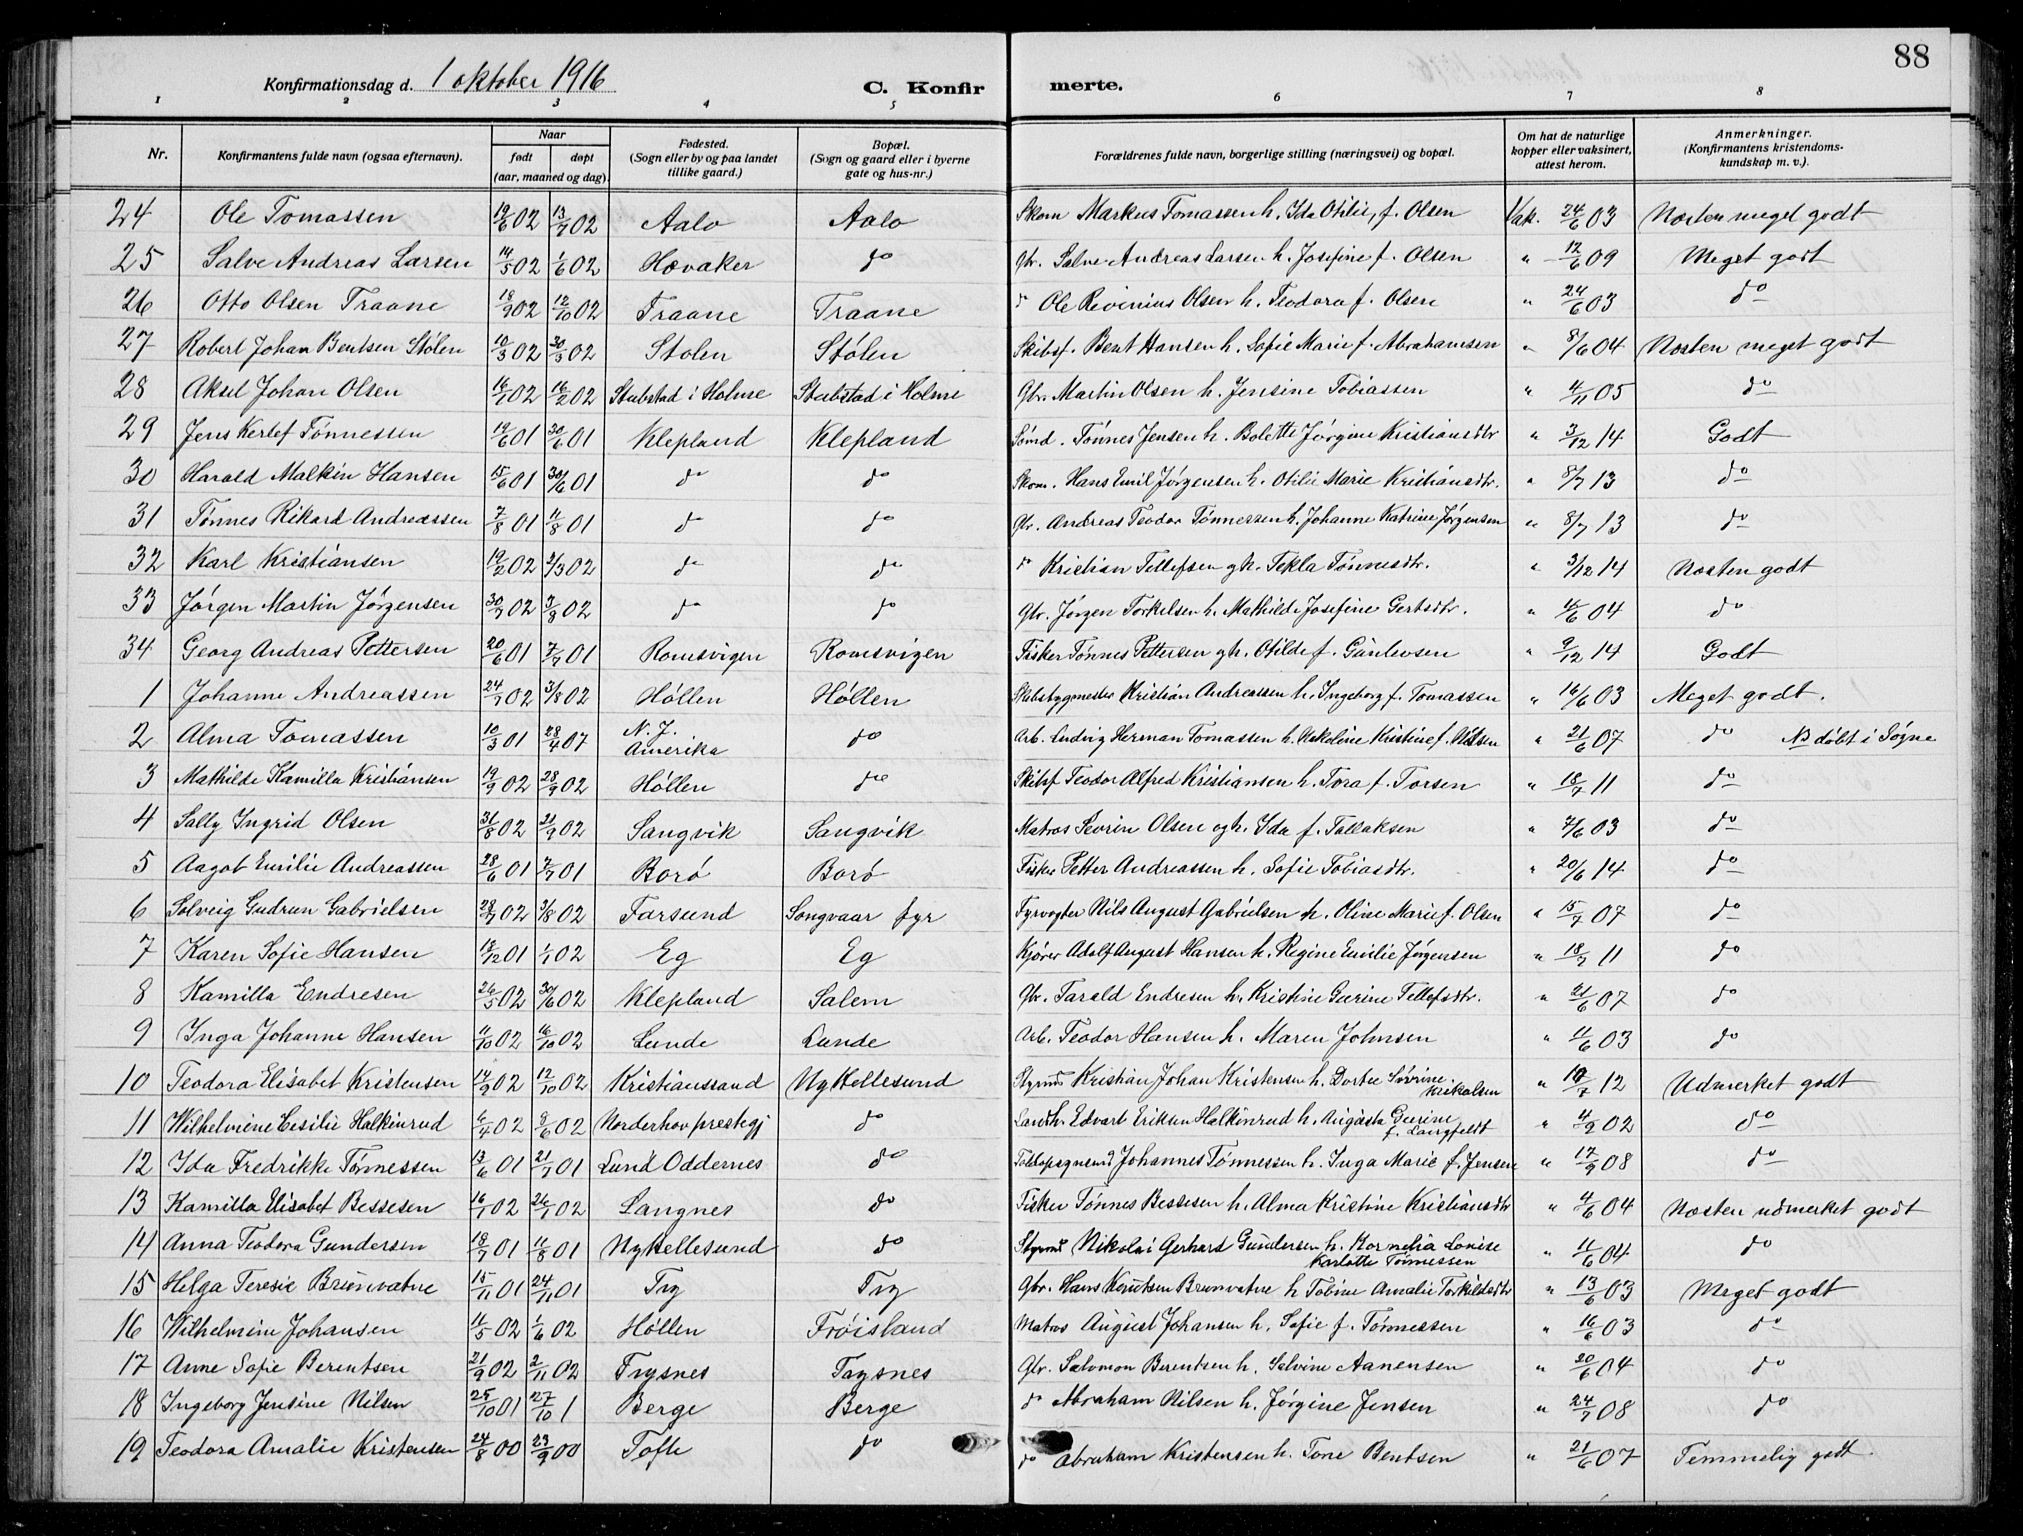 88
Konfirmationsdag d. 1 oktober 1916
C. Konfirmerte.
1 2 3 4 5 6 7 8
Nr. | Konfirmantens fulde navn (ogsaa efternavn). | Naar født døpt (aar, maaned og dag). | Fødested. (Sogn eller by og paa landet tillike gaard.) | Bopæl. (Sogn og gaard eller i byerne gate og hus-nr.) | Forældrenes fulde navn, borgerlige stilling (næringsvei) og bopæl. | Om hat de naturlige kopper eller vaksinert, attest herom. | Anmerkninger. (Konfirmantens kristendomskundskap m. v.).
24 Ole Tomassen 19/6 02 13/7 02 Aalo Aalo Skom Markus Tomassen h. Ida Otilie, f. Olsen Vak. 24/6 03 Næsten meget godt
25 Salve Andreas Larsen 14/5 02 1/6 02 Hævaker do Gbr. Salve Andreas Larsen h. Josefine f. Olsen " 12/6 09 Meget godt
26 Otto Olsen Traane 18/9 02 12/10 02 Traane Traane do Ole Olsen h. Teodora f. Olsen " 24/6 03 do
27 Robert Johan Bentsen Stølen 10/3 02 30/3 02 Stølen Stølen Skibsf. Bent Hansen h. Sofie Marie f. Abrahamsen " 8/6 04 Næsten meget godt
28 Aksel Johan Olsen 16/1 02 16/2 02 Stubstad i Holme Stubstad i Holme Gbr. Martin Olsen h. Jensine Tobiassen " 4/11 05 do
29 Jens Kerlef Tønnessen 19/6 01 30/6 01 Klepland Klepland Smd. Tønnes Jensen h. Bolette Jørgine Kristiansdtr " 3/12 14 Godt
30 Harald Malkin Hansen 15/6 01 30/6 01 do do Skom. Hans Emil Jørgensen h. Otilie Marie Kristiansdtr. " 8/7 13 do
31 Tønnes Rikard Andreassen 7/8 01 11/8 01 do do Gbr. Andreas Teodor Tønnessen h. Johanne Katrine Jørgensen " 8/7 13 do
32 Karl Kristiansen 19/2 02 2/3 02 do do do Kristian Tellefsen og h. Tekla Tønnesdtr. " 3/12 14 Næsten godt
33 Jørgen Martin Jørgensen 30/7 02 3/8 02 do do Gbr. Jørgen Torkelsen h. Mathilde Josefine Gertsdtr. " 4/6 04 do
34 Georg Andreas Pettersen 20/6 01 7/7 01 Romsvigen Romsvigen Fisker Tønnes Pettersen og h. Otilde f. Gunlevsen " 9/12 14 Godt
1 Johanne Andreassen 24/7 02 3/8 02 Høllen Høllen Skibsbygmester Kristian Andreassen h. Ingeborg f. Tomassen " 16/6 03 Meget godt.
2 Alma Tomassen 10/3 01 28/4 07 N. J. Amerika do Arb. Ludvig Herman Tomassen h. Kristine f. Nilsen " 21/6 07 do NB døbt i Søgne
3 Mathilde Kamilla Kristiansen 19/9 02 28/9 02 Høllen do Skibsf Teodor Alfred Kristiansen h. Tora f. Torsen " 18/7 11 do
4 Sally Ingrid Olsen 31/8 02 21/9 02 Sangvik Sangvik Matros Sevrin Olsen og h. Ida f. Tallaksen " 7/6 03 do
5 Aagot Emilie Andreassen 28/6 01 7/7 01 Borø Borø Fisker Petter Andreassen h. Sofie Tobiasdtr. " 20/6 14 do
6 Solveig Gudrun Gabrielsen 28/7 02 3/8 02 Farsund Songvaar fyr Fyrvogter Nils August Gabrielsen h. Oline Marie f. Olsen " 15/7 07 do
7 Karen Sofie Hansen 18/12 01 1/1 02 Eg Eg Kjører Adolf August Hansen h. Regine Emilie Jørgensen " 18/7 11 do
8 Kamilla Endresen 26/5 02 30/6 02 Klepland Salem Gbr. Tarald Endresen h. Kristine Gurine Tellefsdtr. " 21/6 07 do
9 Inga Johanne Hansen 11/10 02 16/10 02 Lunde Lunde Arb. Teodor Hansen h. Maren Johnsen " 11/6 03 do
10 Teodora Elisabet Kristensen 14/9 02 12/10 02 Kristianssand Ny Hellesund Styrmd Kristian Johan Kristensen h. Dortea Sørine Nikolsen " 19/7 12 Udmerket godt
11 Wilhelmine Cesilie Halkinrud 6/4 02 8/6 02 Norderhov prestegj do Landh. Edvart Eriksen Halkinrud h. Augusta Gurine f. Langfeldt " 4/9 02 do
12 Ida Fredrikke Tønnessen 13/6 01 21/7 01 Lund Oddernes do Toldopsynsmd Johannes Tønnessen h. Inga Marie f. Jensen " 17/9 08 do
13 Kamilla Elisabet Bessesen 16/1 02 26/1 02 Langnes do Fisker Tønnes Bessesen h. Alma Kristine Kristiansdtr " 4/6 04 Næsten udmerket godt
14 Anna Teodora Gundersen 18/7 01 11/8 01 Ny Hellesund do Styrmd Nikolai Gerhard Gundersen h. Kornelia Lonise Karlotte Tønnessen " 11/6 04 do
15 Helga Teresie Brunvatne 15/11 01 24/11 01 Try Try Gbr. Hans Knutsen Brunvatne h Tobine Amalie Torkildsdtr " 13/6 03 Meget godt
16 Wilhelmine Johansen 11/5 02 1/6 02 Høllen Frøisland Matros August Johansen h. Sofie f. Tønnessen " 16/6 03 do
17 Anne Sofie Berentsen 21/9 02 2/11 02 Trysnes Trysnes Gbr. Salomon Berentsen h. Salvine Aanensen " 20/6 04 do
18 Ingeborg Jensine Nilsen 25/10 01 27/10 1 Berge Berge do Abraham Nilsen h. Jørgine Jensen " 24/7 08 do
19 Teodora Amalie Kristensen 24/8 00 23/9 00 Tofte do do Abraham Kristensen h. Tone Bentsen " 21/6 07 Temmelig godt